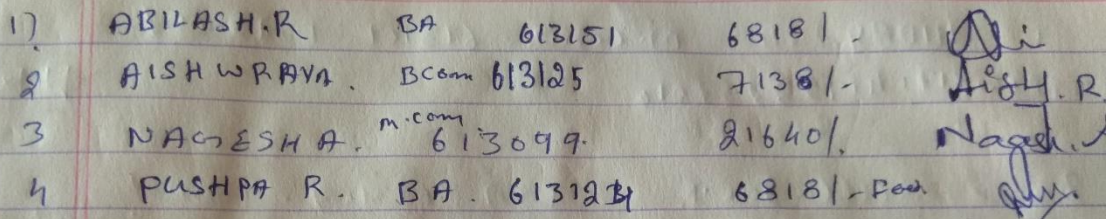 1) ABILASH.R BA 613151 6818/-
2 AISHWRAYA. BCom 613125 7138/- Aish.R
3 NAGESHA. M.com 613099. 21640/. Nagesh.
4 PUSHPA R. BA. 613124 6818/-